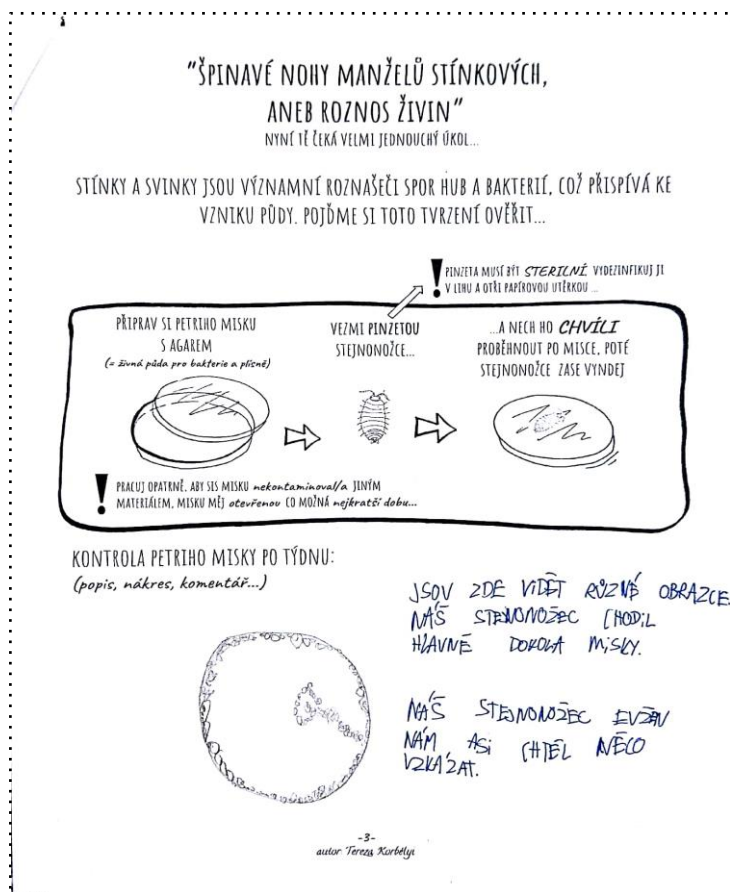 "ŠPINAVÉ NOHY MANŽELŮ STÍNKOVÝCH,
ANEB ROZNOS ŽIVIN"
NYNÍ TĚ ČEKÁ VELMI JEDNOUCHÝ ÚKOL...
STÍNKY A SVINKY JSOU VÝZNAMNÍ ROZNAŠEČI SPOR HUB A BAKTERIÍ, COŽ PŘISPÍVÁ KE
VZNIKU PŮDY. POJĎME SI TOTO TVRZENÍ OVĚŘIT...
! PINZETA MUSÍ BÝT STERILNÍ, VYDEZINFIKUJ JI
V LIHU A OTŘI PAPÍROVOU UTĚRKOU ...
PŘIPRAV SI PETRIHO MISKU
S AGAREM
(= živná půda pro bakterie a plísně)
VEZMI PINZETOU
STEJNONOŽCE...
...A NECH HO CHVÍLI
PROBĚHNOUT PO MISCE, POTÉ
STEJNONOŽCE ZASE VYNDEJ
! PRACUJ OPATRNĚ, ABY SIS MISKU nekontaminoval/a JINÝM
MATERIÁLEM, MISKU MĚJ otevřenou CO MOŽNÁ nejkratší dobu...
KONTROLA PETRIHO MISKY PO TÝDNU:
(popis, nákres, komentář...)
JSOU ZDE VIDĚT RŮZNÉ OBRAZCE.
NÁŠ STEJNONOŽEC CHODIL
HLAVNĚ DOKOLA MISKY.
NÁŠ STEJNONOŽEC EVŽEN
NÁM ASI CHTĚL NĚCO
VZKÁZAT.
-3-
autor Tereza Korbélyi